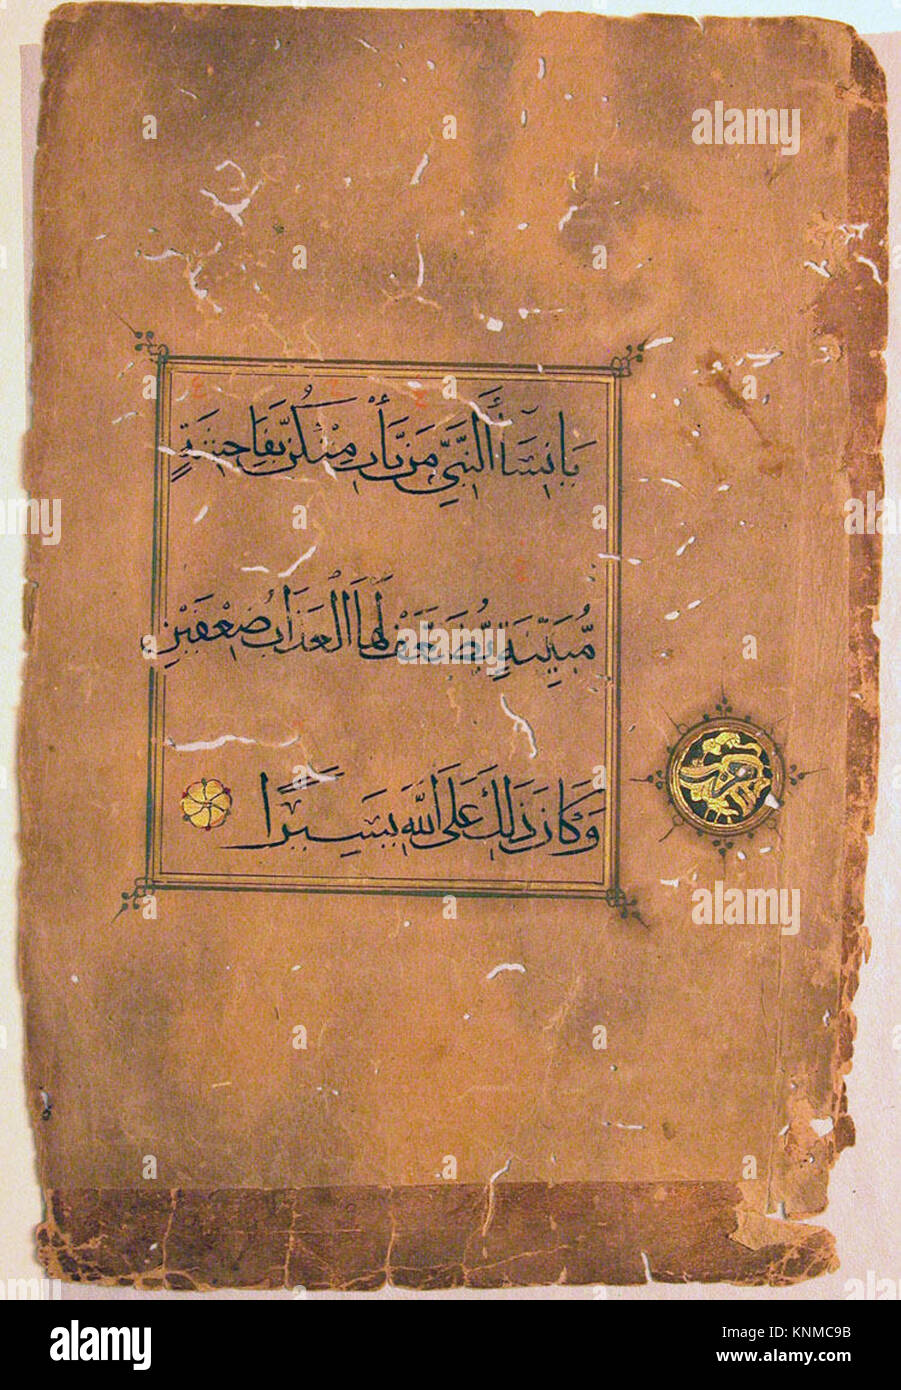 يَانِسَآءَ النَّبِيِّ مَن يَّأْتِ مِنكُنَّ بِفَاحِشَةٍ
مُّبَيِّنَةٍ يُّضَعَفْ لَهَا الْعَذَابُ ضِعْفَيْنِ
وَكَانَ ذَلِكَ عَلَى اللَّهِ يَسِيرًا
alamy
alamy
alamy
alamy
Image ID: KNMC9B
www.alamy.com